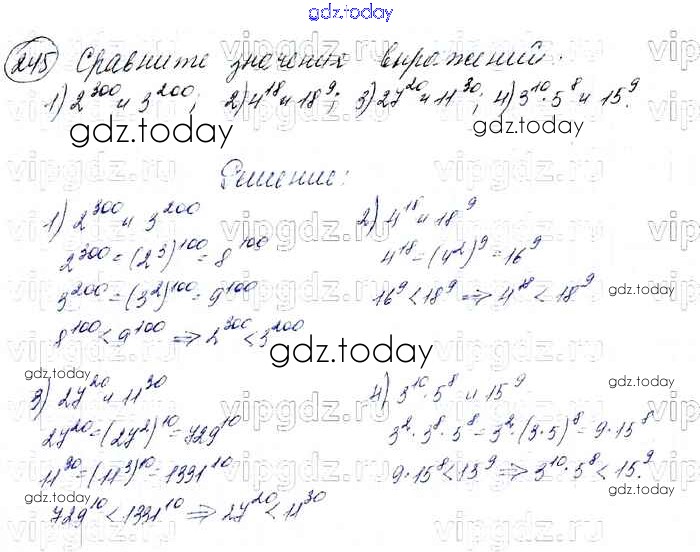 gdz.today
245 Сравните значения выражений:
1) 2^300 и 3^200; 2) 4^18 и 18^9; 3) 27^20 и 11^30; 4) 3^10·5^8 и 15^9.
gdz.today gdz.today
Решение:
1) 2^300 и 3^200 2) 4^18 и 18^9
2^300=(2^3)^100=8^100 4^18=(4^2)^9=16^9
3^200=(3^2)^100=9^100 16^9<18^9 => 4^18<18^9
gdz.today gdz.today
8^100<9^100 => 2^300<3^200
gdz.today
3) 27^20 и 11^30 4) 3^10·5^8 и 15^9
27^20=(27^2)^10=729^10 3^2·3^8·5^8=3^2·(3·5)^8=9·15^8
11^30=(11^3)^10=1331^10 9·15^8<15^9 => 3^10·5^8<15^9.
gdz.today gdz.today
729^10<1331^10 => 27^20<11^30
vipgdz.ru